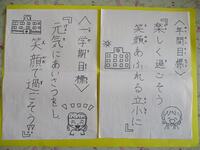 〈年間目標〉
『楽しく過ごそう
笑顔あふれる立小に』
〈一学期目標〉
『元気にあいさつをし、
笑顔で過ごそう』